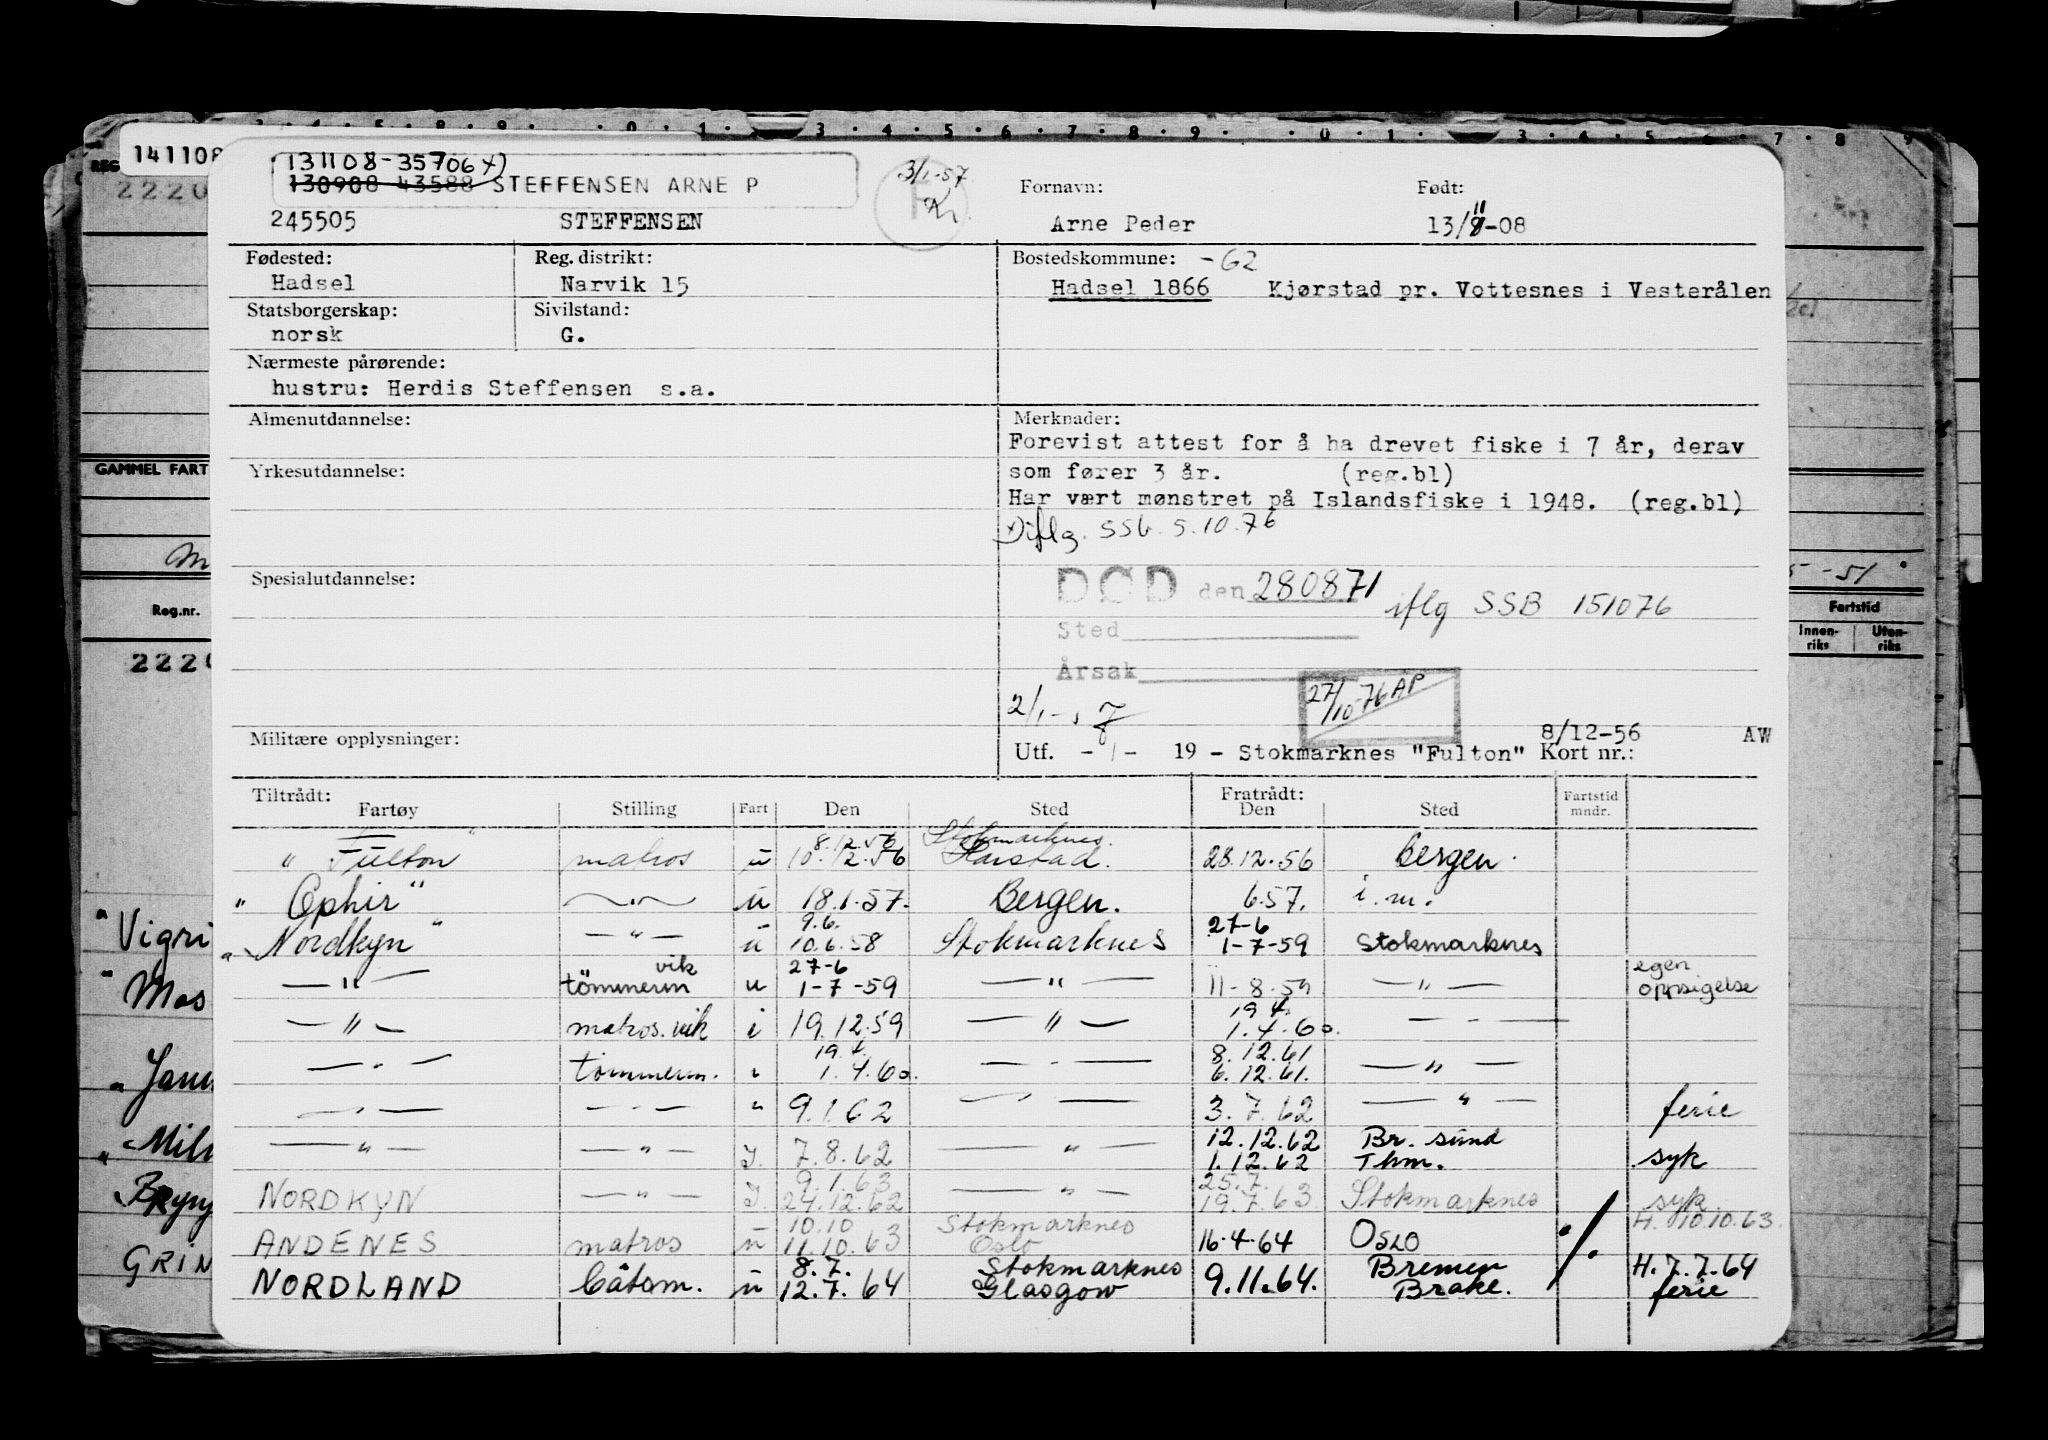 141108
131108-35706 x)
130908 43588 STEFFENSEN ARNE P
3/1-57
245505 STEFFENSEN
Fornavn: Født:
Arne Peder 13/11-08
Fødested: Reg. distrikt: Bostedskommune: -62
Hadsel Narvik 15 Hadsel 1866 Kjørstad pr. Vottesnes i Vesterålen
Statsborgerskap: Sivilstand:
norsk G.
Nærmeste pårørende:
hustru: Herdis Steffensen s.a.
Almenutdannelse: Merknader:
Forevist attest for å ha drevet fiske i 7 år, derav
Yrkesutdannelse: som fører 3 år. (reg.bl)
Har vært mønstret på Islandsfiske i 1948. (reg.bl)
x) iflg. SSB. 5.10.76
Spesialutdannelse:
DØD den 280871 iflg SSB 151076
Sted
Årsak
27/10-76 AP
2/1-
8/12-56 AW
Militære opplysninger: Utf. -/- 19 - Stokmarknes "Fulton" Kort nr.:
Tiltrådt: Fratrådt: Fartstid mndr.
Fartøy Stilling Fart Den Sted Den Sted
8.12.56 Stokmarknes.
" Fulton " matros u 10.12.56 Harstad. 28.12.56 Bergen.
" Ophir " — " — u 18.1.57. Bergen. 6.57. i.m.
9.6. 27-6
" Nordkyn " — " — u 10.6.58 Stokmarknes 1-7-59 Stokmarknes
vik 27-6 egen
— " — tömmerm u 1-7-59 — " — 11-8-59 — " — oppsigelse
19.4.
— " — matros. vik i 19.12.59 — " — 1.4.60. — " —
19.4. 8.12.61
— " — tömmerm. " 1.4.60. — " — 6.12.61. — " —
— " — — " — " 9.1.62 — " — 3.7.62 — " — ferie
12.12.62 Br. sund
— " — — " — I. 7.8.62 — " — 1.12.62 Thm. syk
9.1.63 25.7.
NORDKYN — " — I. 24.12.62 — " — 19.7.63 Stokmarknes syk
10.10 Stokmarknes H. 10.10.63.
ANDENES matros u 11.10.63 Oslo 16.4.64 OSLO
8.7. Stokmarknes Bremen H. 7.7.64
NORDLAND båtsm. u 12.7.64 Glasgow 9.11.64. Brake. ferie
GAMMEL FART
Reg.nr.
Fartstid
Innen-riks Uten-riks
2220
2220
" Vigri
" Mos
GRIN